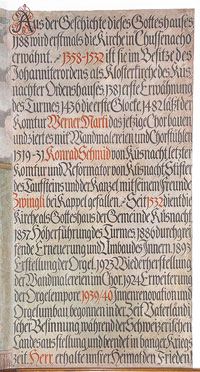 Aus der Geschichte dieses Gotteshauses
1188 wird erstmals die Kirche in Chussenacho
erwähnt. - 1358-1532 ist sie im Besitze des
Johanniterordens als Klosterkirche des Küs-
nachter Ordenshauses 1381 erste Erwähnung
des Turmes 1436 die erste Glocke 1482 läßt der
Komtur Werner Marti das jetzige Chor bauen
und ziert es mit Wandmalereien und Chorstühlen
1519-31 Konrad Schmid von Küsnacht letzter
Komtur und Reformator von Küsnacht Stifter
des Taufsteins und der Kanzel mit seinem Freunde
Zwingli bei Kappel gefallen. - Seit 1532 dient die
Kirche als Gotteshaus der Gemeinde Küsnacht.
1857 Höherführung des Turmes. 1886 durchgrei-
fende Erneuerung und Umbau des Innern. 1893
Erstellung der Orgel. 1923 Wiederherstellung
der Wandmalereien im Chor. 1924 Erweiterung
der Orgelempor. 1939/40 Innenrenovation und
Orgelumbau begonnen in der Zeit Vaterländi-
scher Besinnung während der Schweizerischen
Landesausstellung und beendet in banger Kriegs-
zeit Herr erhalte unsrer Heimat den Frieden!